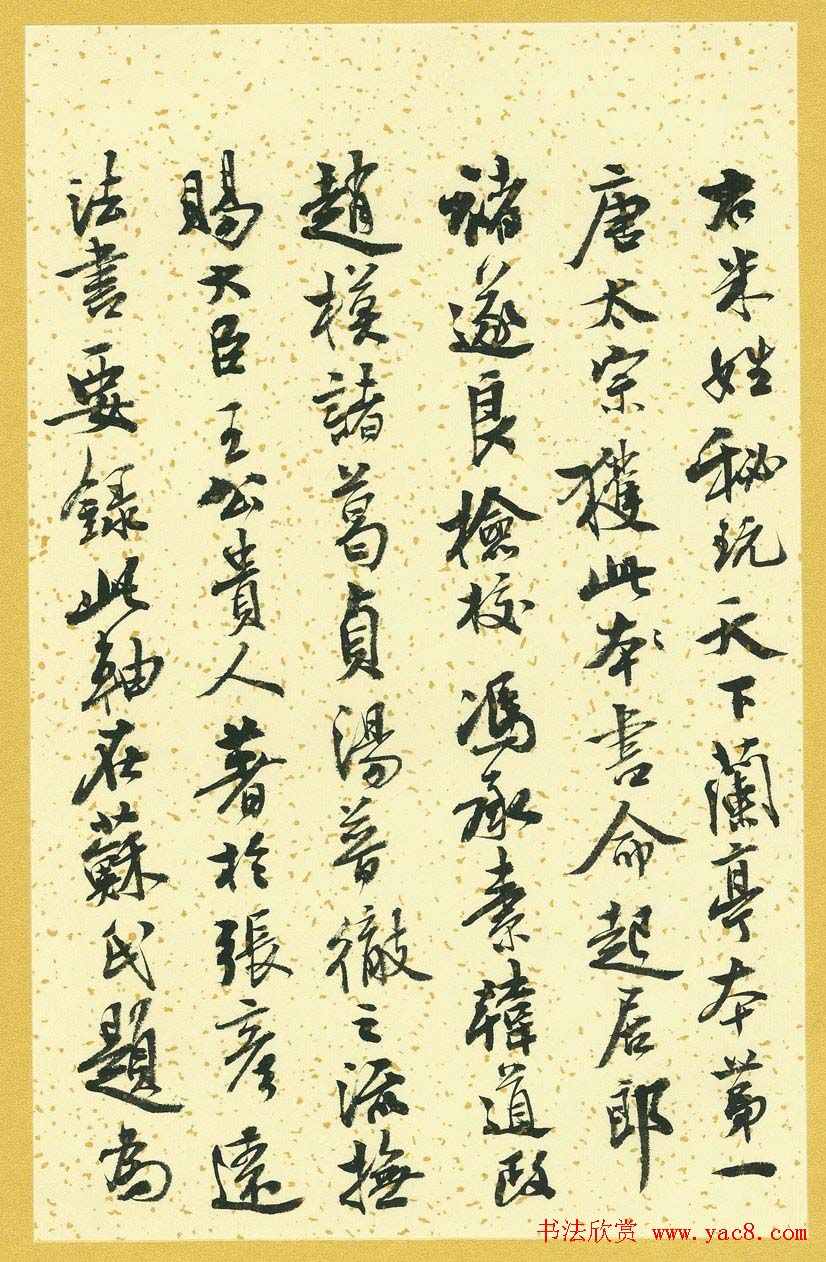 右米姓秘玩天下蘭亭本第一
唐太宗獲此本書命起居郎
褚遂良檢校馮承素韓道政
趙模諸葛貞湯普徹之流摹
賜大臣王公貴人著於張彦遠
法書要錄此軸在蘇氏題為
书法欣赏 www.yac8.com